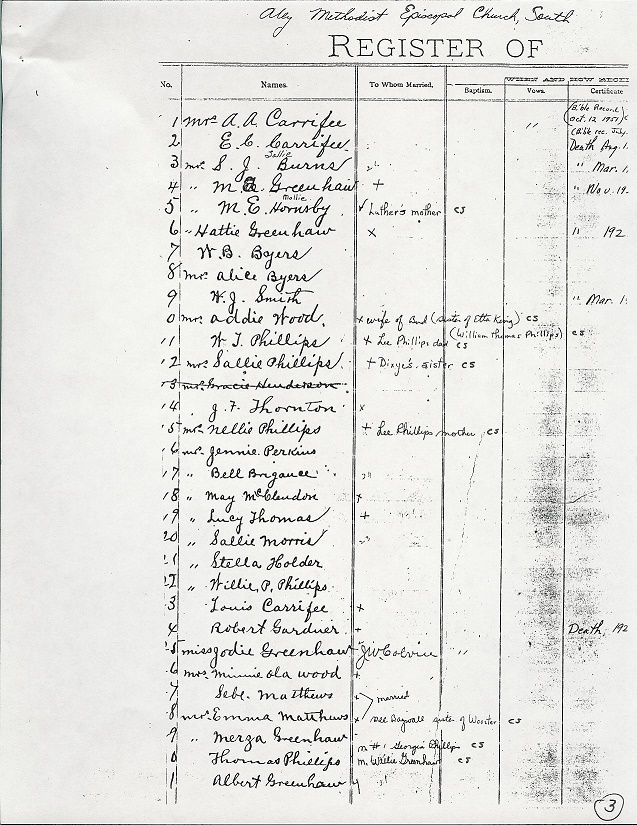 Aley Methodist Episcopal Church, South
REGISTER OF
WHEN AND HOW RECEI
No. Names. To Whom Married. Baptism. Vows. Certificate
1 Mrs A. A. Carrifee " (Bible Record) Oct. 12 1951
2 E. C. Carrifee (Bible rec. July. Death Aug. 1.
3 Mrs. S. J. Sallie Burns " Mar. 1,
4 " M. E. Greenhaw + " Nov. 19-
5 " M. E. Mollie Hornsby ✓ Luther's mother cs
6 " Hattie Greenhaw x " 192
7 W. B. Byers
8 Mrs. Alice Byers
9 W. J. Smith " Mar. 1
0 Mrs. Addie Wood. x wife of Bud (sister of Etta King) cs
11 W T. Phillips + Lee Phillips dad (William Thomas Phillips) cs cs
12 Mrs. Sallie Phillips + Dixye's sister cs
13 Mrs. Gracie Henderson
14 J. F. Thornton x
15 Mrs Nellie Phillips + Lee Phillips mother cs
16 Mrs. Jennie Perkins
17 " Bell Brigance "
18 " May McClendon x
19 " Lucy Thomas +
20 " Sallie Morris "
21 " Stella Holder
22 " Willie P. Phillips
3 Louis Carrifee x
4 Robert Gardner + Death, 192
5 Miss Jodie Greenhaw J. W. Colvin "
6 Mrs. Minnie Ola Wood +
7 Sebe. Matthews x married
8 Mrs. Emma Matthews x dau sister of Wooster cs
9 " Merza Greenhaw
0 Thomas Phillips m #1 Georgia Phillips cs
m. Willie Greenhaw cs
1 Albert Greenhaw
3